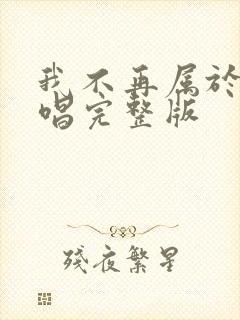 我不再属於
唱完整版
残夜繁星